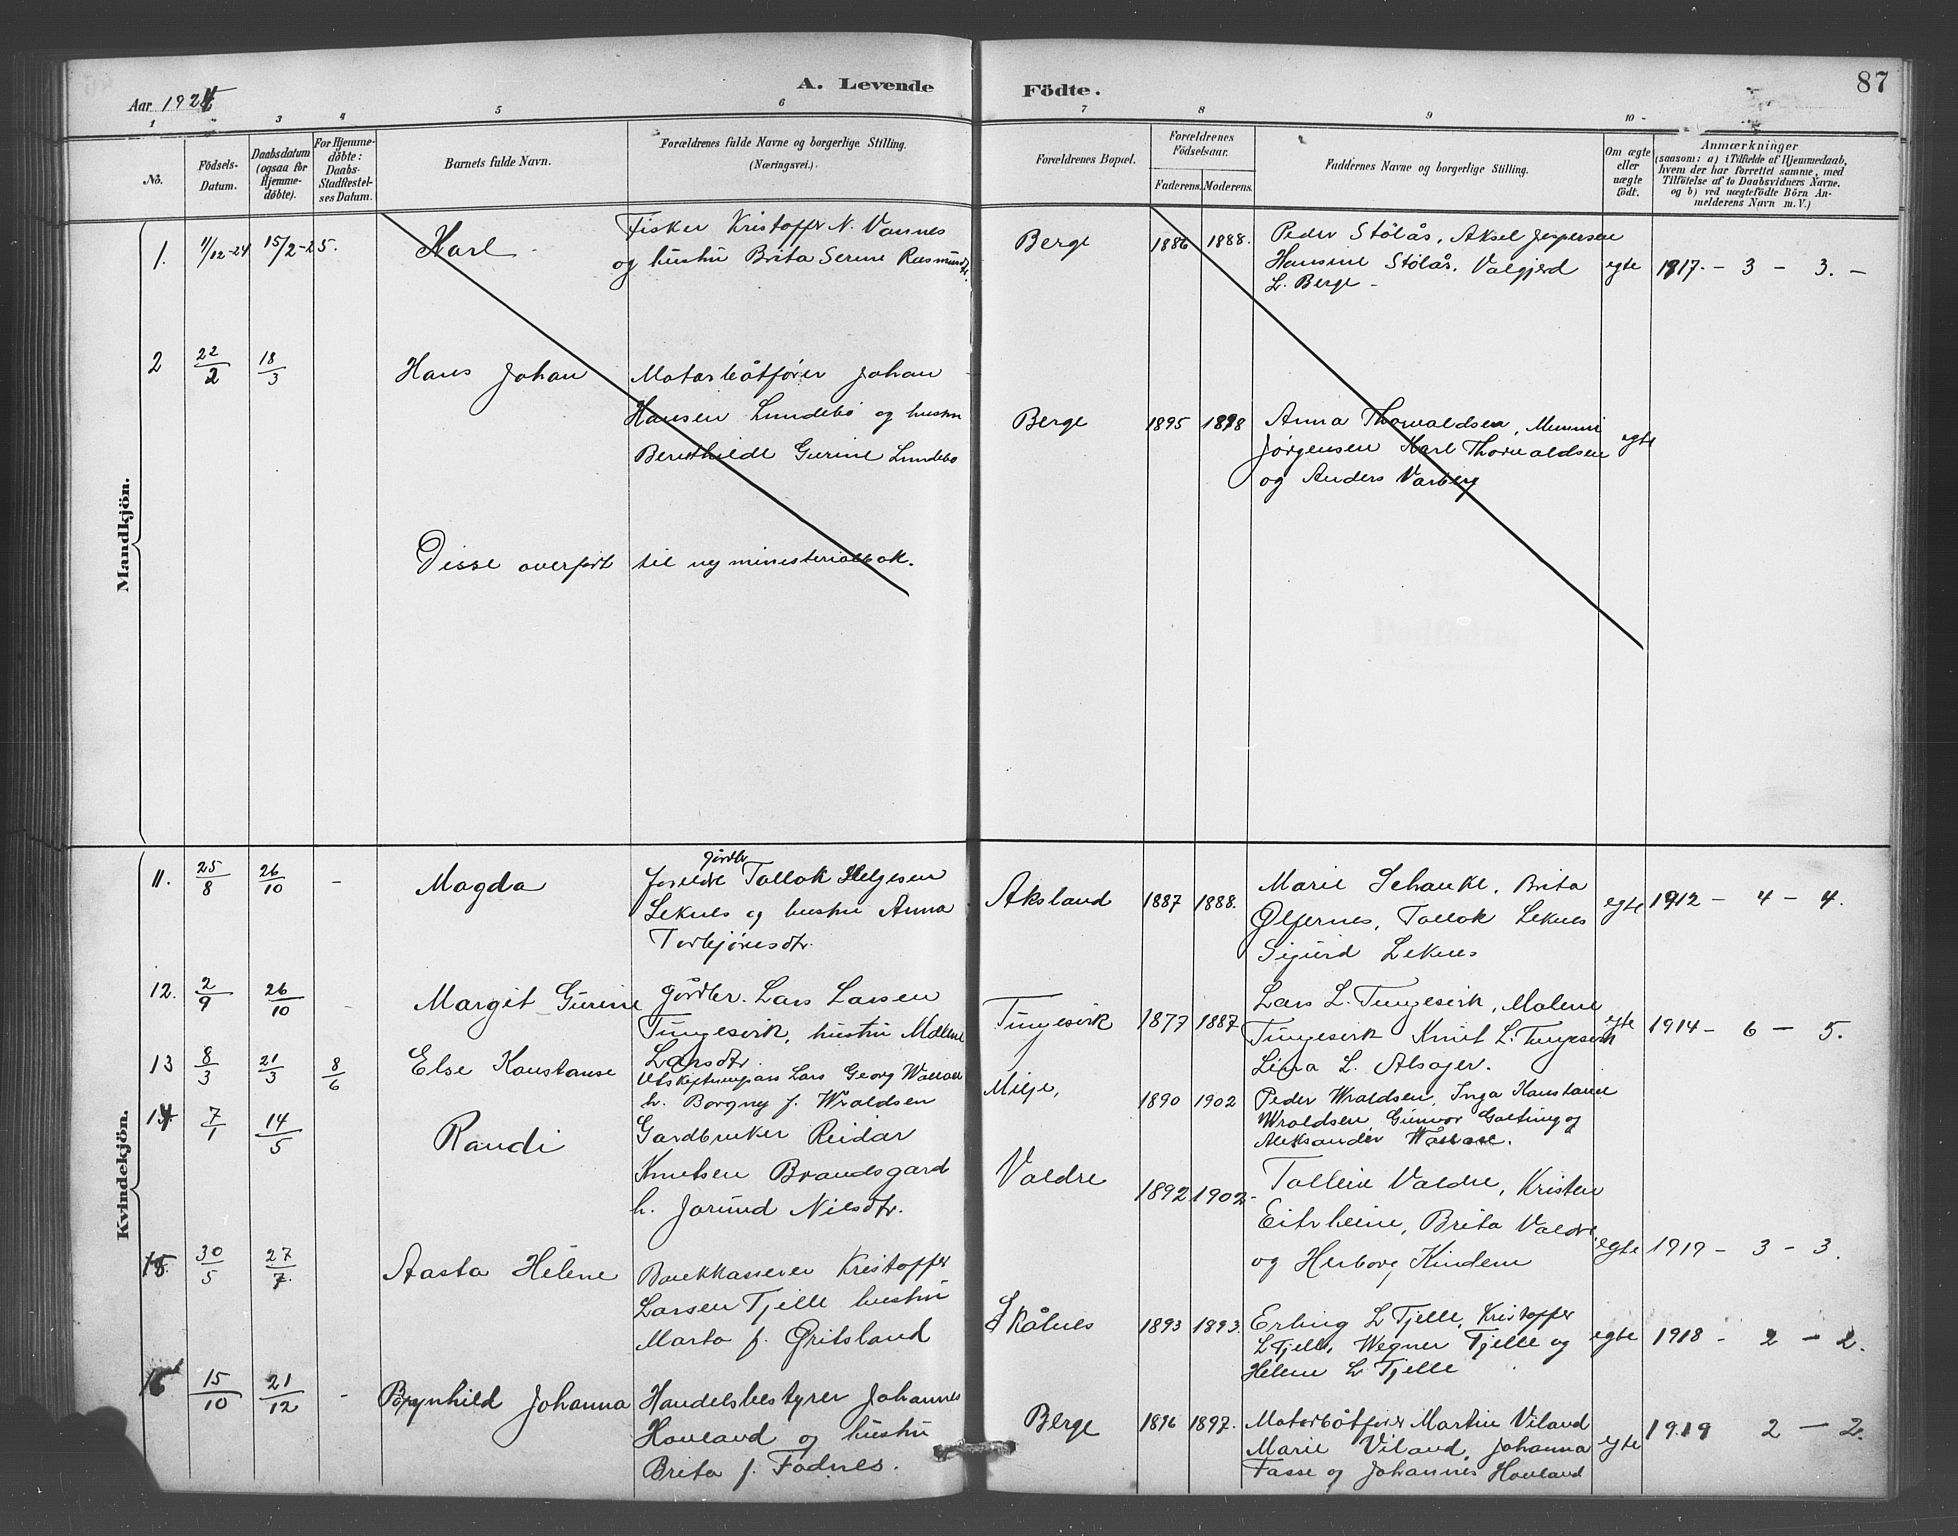 Aar 1924
A. Levende Födte.
87
1 3 4 5 6 7 8 9 10
No.
Födsels-Datum.
Daabsdatum (ogsaa for Hjemme-döbte).
For Hjemme-döbte: Daabs-Stadfæstel-ses Datum.
Barnets fulde Navn.
Forældrenes fulde Navne og borgerlige Stilling.
(Næringsvei).
Forældrenes Bopæl.
Forældrenes Födselsaar.
Faderens. Moderens.
Faddernes Navne og borgerlige Stilling.
Om ægte eller uægte födt.
Anmærkninger
(saasom: a) i Tilfælde af Hjemmedaab,
hvem der har forrettet samme, med
Tilföielse af to Daabsvidners Navne.
og b) ved uægtefödte Börn An-
melderens Navn m. V.)
Mandkjön.
1. 1/12-24 15/2-25. Karl
Fisker Kristoffer N. Vannes
og hustru Brita Serine Rasmusdtr.
Berge 1886 1888.
Peder Stölås, Aksel Jespersen
Hansine Stölås, Valgjerd
L. Berge -
egte 1917. - 3 - 3. -
2 22/2 18/3 Hans Johan
Motorbåtfører Johan
Hansen Lundebö og hustru
Berethilde Gurine Lundebo
Berge 1895 1898
Anna Thorvaldsen, Mimmi
Jørgensen Karl Thorvaldsen
og Anders Varberg
egte
Disse overført til ny ministerialbok.
Kvindekjön.
11. 25/8 26/10 - Magda
gårdbr
Tallak Helgesen
Leknes og hustru Anna
Torbjørnsdtr.
Aksland 1887 1888.
Marie Schanke, Brita
Ølfernes, Tallak Leknes
Sigurd Leknes
egte 1912 - 4 - 4.
12. 2/9 26/10 - Margit Gurine
gårdbr. Lars Larsen
Tungesvik, hustru Malene
Larsdtr.
Tungesvik 1877 1887
Lars L. Tungesvik, Malene
Tungesvik Knut L. Tungesvik
Lina L. Alsager.
egte 1914 - 6 - 5.
13 8/3 21/3 8/6 Else Konstanse
Lars Georg
h. Borgny f. Wraldsen
Milje, 1890 1902
Peder Wraldsen, Inga Konstanse
Wraldsen, Gunvor Goeting og
Aleksander
14 7/1 14/5 Randi
Gardbruker Reidar
Knutsen Brandsgard
h. Jorund Nilsdtr.
Valdre 1892 1902-
Tolleiv Valdre, Kristen
Eitrheim, Brita Valdre
og Herborg Kindem
egte 1919 - 3 - 3.
15. 30/5 27/7. Aasta Helene
Bankkasserer Kristoffer
Larsen Tjelle hustru
Marta f. Gritsland
Skålnes 1893 1893.
Erling L Tjelle, Kristoffer
L Tjelle, Wegner Tjelle og
Helene L Tjelle
egte 1918 - 2 - 2.
16 15/10 21/12 - Brynhild Johanna
Handelsbestyrer Johannes
Havland og hustru
Brita f. Fadnes.
Berge 1896 1897.
Motorbåtfører Martin Viland
Marie Viland, Johanna
Fasse og Johannes Havland
egte 1919 2 - 2.